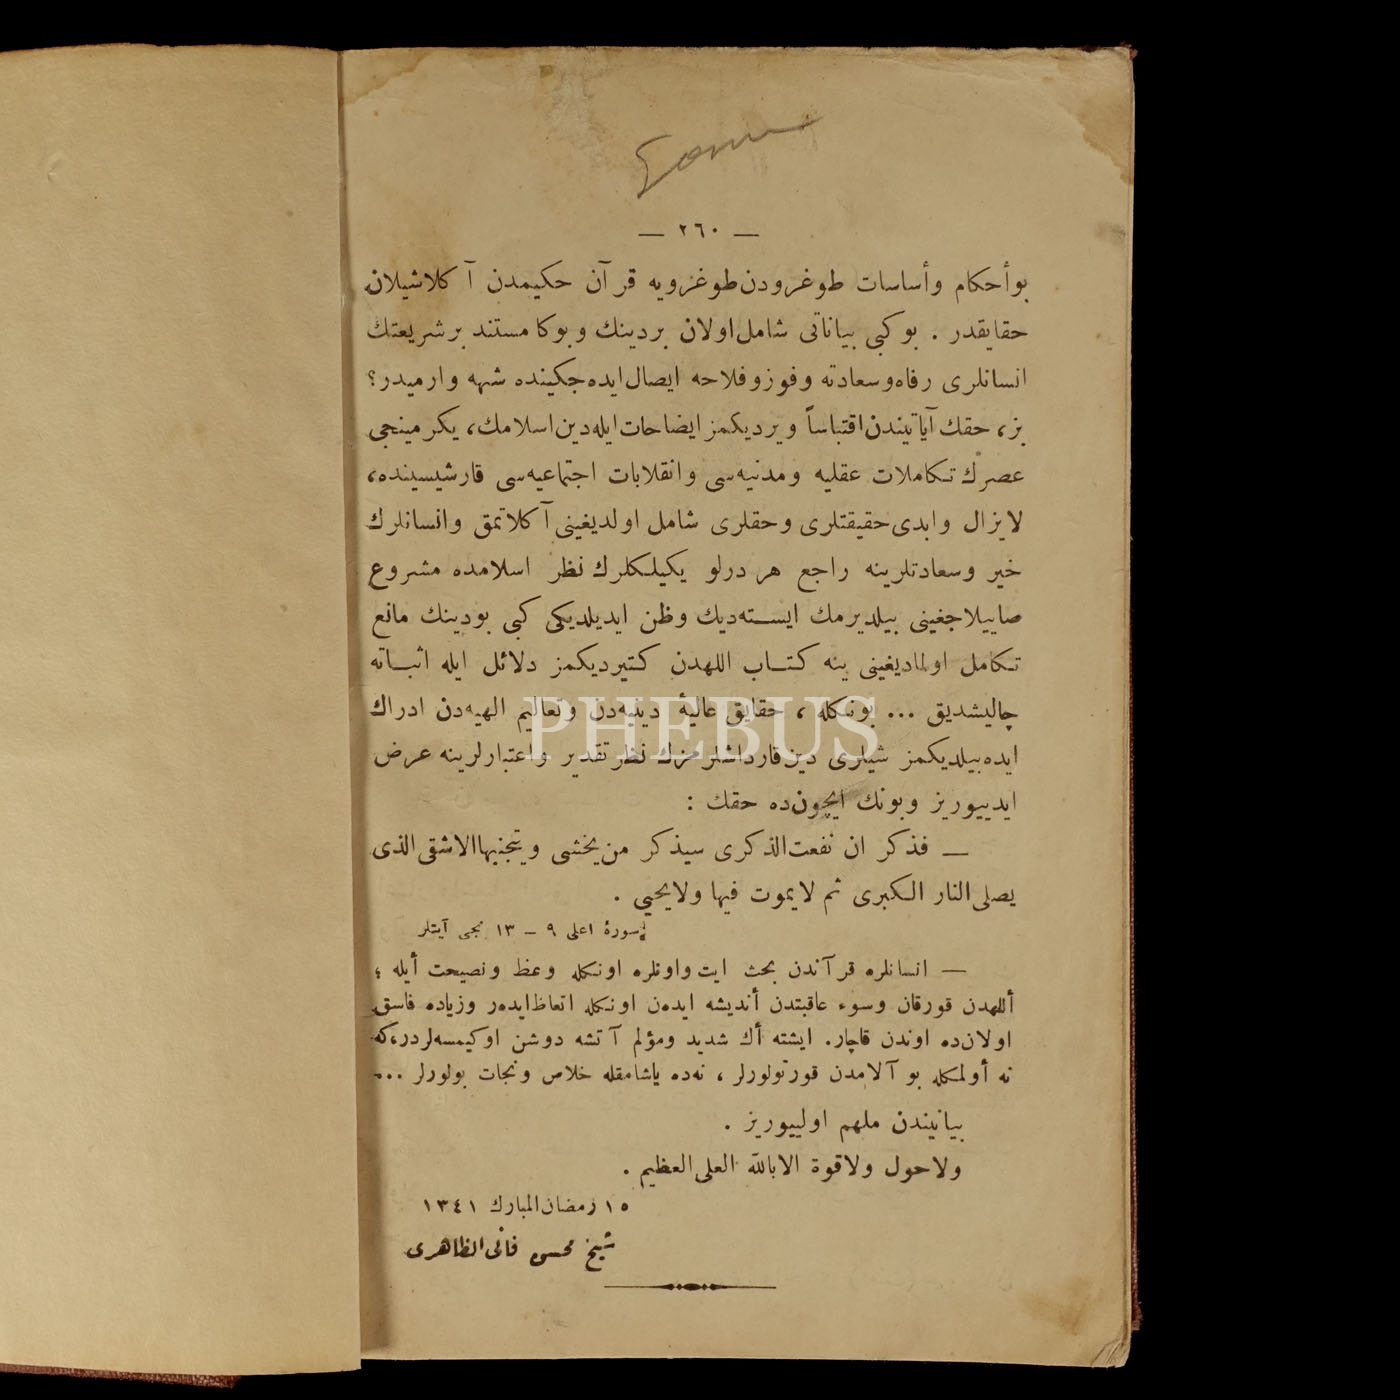 — ٢٦٠ —
بو أحكام و أساسات طوغرودن طوغرويه قرآن حكيمدن آكلاشيلان
حقايقدر . بو كبى بياناتى شامل اولان بر دينك و بوكا مستند بر شريعتك
انسانلرى رفاه و سعادته و فوز و فلاحه ايصال ايده جكينده شبهه وارميدر؟
بز، حقك آياتيندن اقتباساً ويرديكمز ايضاحات ايله دين اسلامك، يكرمينجى
عصرك تكاملات عقليه و مدنيه سى و انقلابات اجتماعيه سى قارشيسينده،
لايزال و ابدى حقيقتلرى و حقلرى شامل اولديغينى آكلاتمق و انسانلرك
خير و سعادتلرينه راجع هر درلو يكيلكلرك نظر اسلامده مشروع
صاييلاجغينى بيلديرمك ايسته ديك و ظن ايديلديكى كبى بو دينك مانع
تكامل اولماديغينى ينه كتاب اللهدن كتيرديكمز دلائل ايله اثباته
چاليشديق ... بونكله ، حقايق عاليۀ دينيه دن و تعاليم الهيه دن ادراك
ايده بيلديكمز شيلرى دين قارداشلرمزك نظر تقدير و اعتبارلرينه عرض
ايدييوريز و بونك ايچون ده حقك :
— فذكر ان نفعت الذكرى سيذكر من يخشى و يتجنبها الاشقى الذى
يصلى النار الكبرى ثم لايموت فيها ولايحيي .
سورۀ اعلى ٩ – ١٣ نجى آيتلر
— انسانلره قرآندن بحث ايت و اونلره اونكله وعظ و نصيحت أيله ؛
أللهدن قورقان و سوء عاقبتدن أنديشه ايدەن اونكله اتعاظ ايدەر و زياده فاسق
اولان ده اوندن قاچار. ايشته أك شديد و مؤلم آتشه دوشن او كيمسه لردر، كه
نه أولمكله بو آلامدن قورتولورلر ، نه ده ياشامقله خلاص و نجات بولورلر ...
بيانيندن ملهم اولييوريز .
ولاحول ولاقوة الابالله العلى العظيم .
١٥ رمضان المبارك ١٣٤١
شيخ محسن فانى الظاهرى
PHEBUS